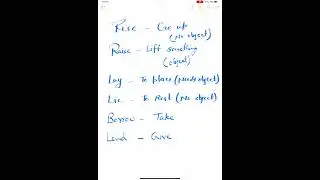 Rise - Go up
(No object)
Raise - Lift something
(object)
Lay - To place (Needs object)
Lie - To Rest (No object)
Borrow - Take
Lend - Give